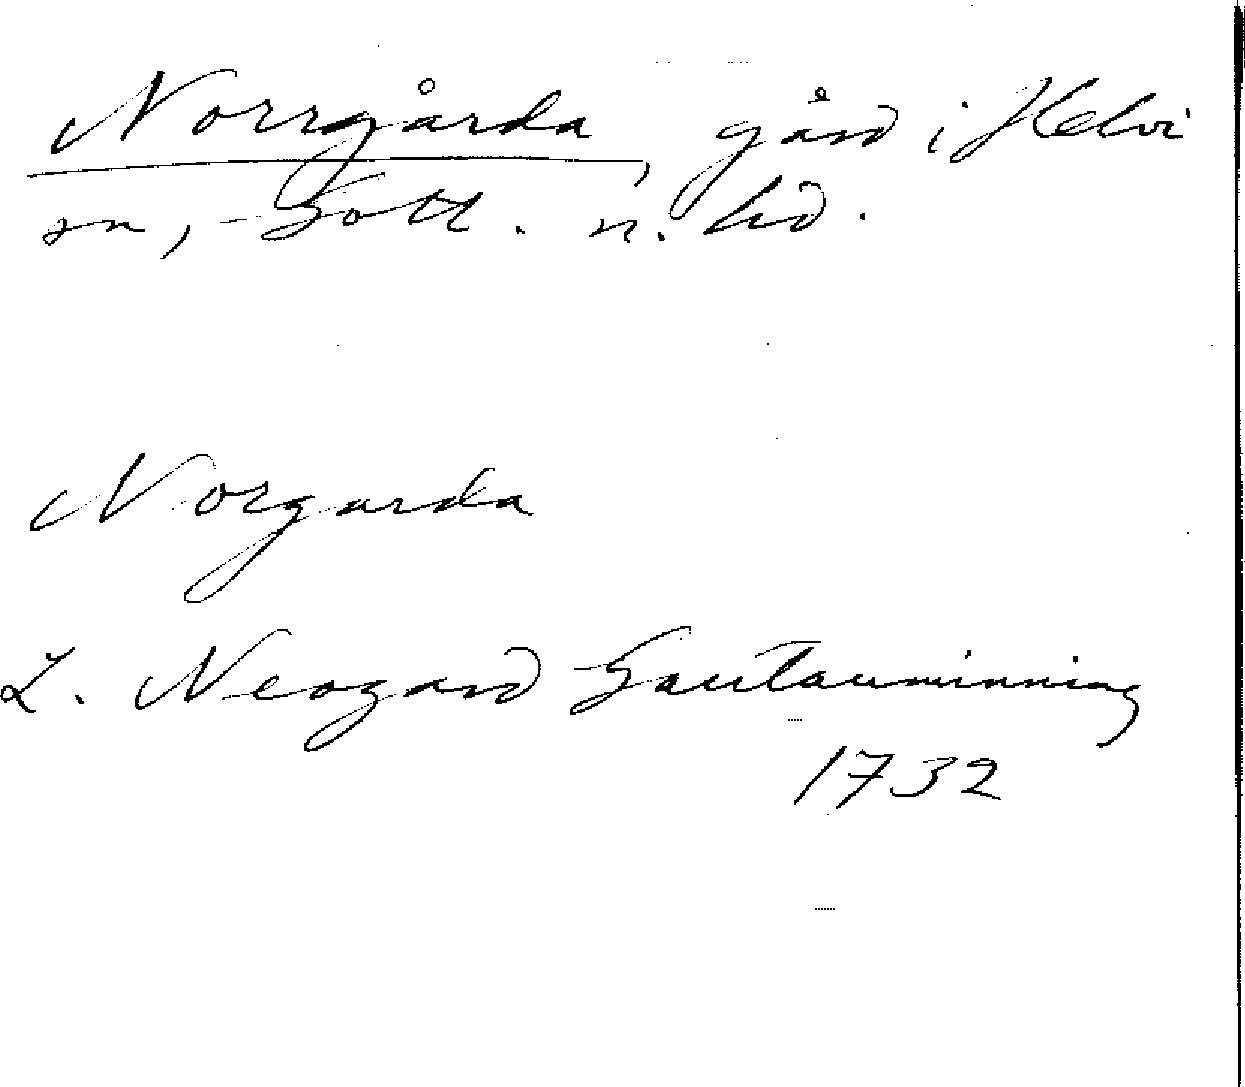 Norrgårda, gård i Helvi
sn, Gotl. n. hd.
Norgarda
L. Neogard Gautauminning
1732